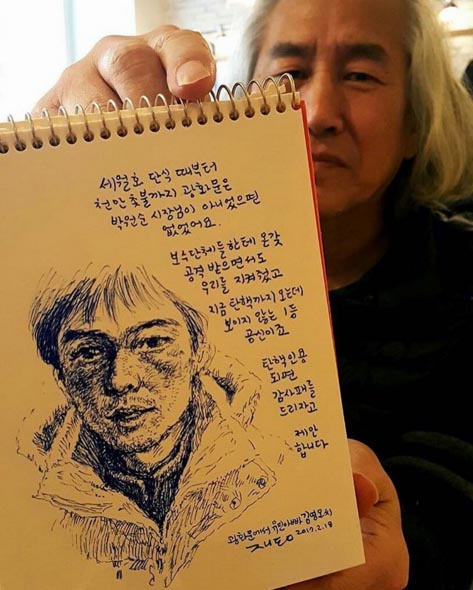 세월호 단식 때부터
천안 촛불까지 광화문은
박원순 시장님이 아니었으면
없었어요.
보수단체들한테 온갖
공격 받으면서도
우리를 지켜줬고
지금 탄핵까지 오는데
보이지 않는 1등
공신이죠
탄핵인용
되면
감사패를
드리자고
제안
합니다
광화문에서 유민아빠 김영오씨
2017.2.18